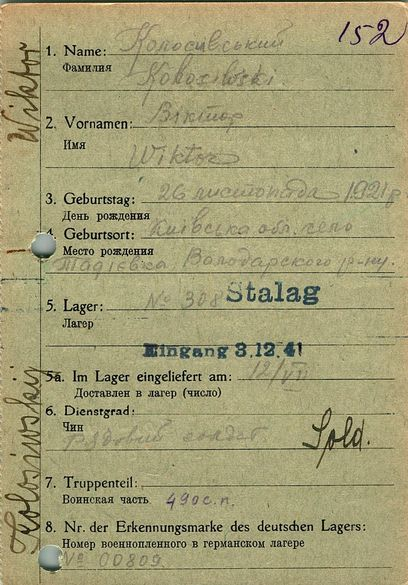 152
1. Name: Колосивський
Фамилия Koloziwski
2. Vornamen: Віктор
Имя Wiktor
3. Geburtstag: 26 листопада 1921 р
День рождения
4. Geburtsort: Київська обл. село
Место рождения
Тадіевка Володарского р-ну.
5. Lager: № 308 Stalag
Лагер
Eingang 3.12.41
5a. Im Lager eingeliefert am: 12/VII
Доставлен в лагер (число)
6. Dienstgrad:
Чин
Рядовий солдат Sold.
7. Truppenteil:
Воинская часть 490 с.п.
8. Nr. der Erkennungsmarke des deutschen Lagers:
Номер военнопленного в германском лагере
№ 00809
Koloziwskij
Wiktor